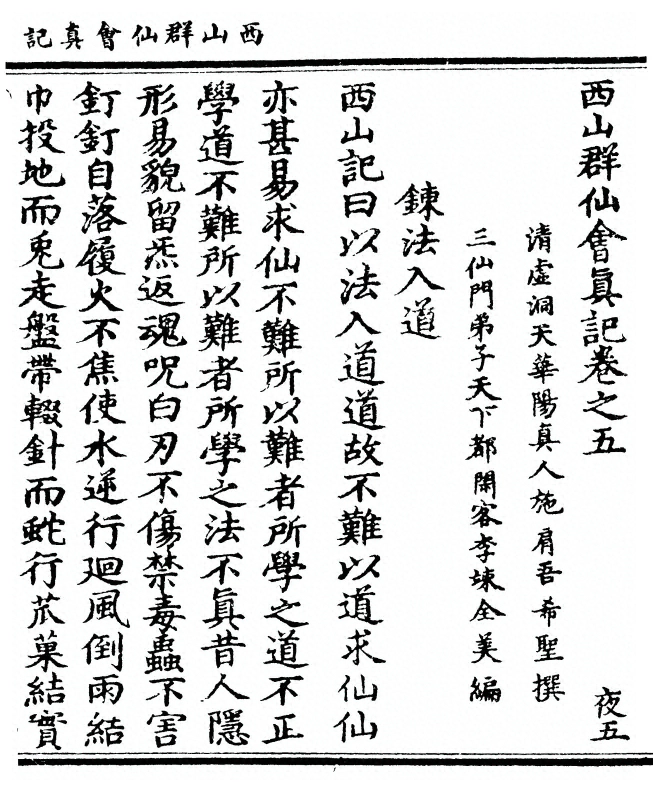 西山群仙會真記
西山群仙會真記卷之五
夜五
清虛洞天華陽真人施肩吾希聖撰
三仙門弟子天下都閑客李竦全美編
鍊法入道
西山記曰以法入道道故不難以道求仙仙
亦甚易求仙不難所以難者所學之道不正
學道不難所以難者所學之法不真昔人隱
形易貌留炁返魂呪白刃不傷禁毒蟲不害
釘釘自落履火不焦使水逆行廻風倒雨結
巾投地而兎走盤帶輟針而虵行苽菓結實